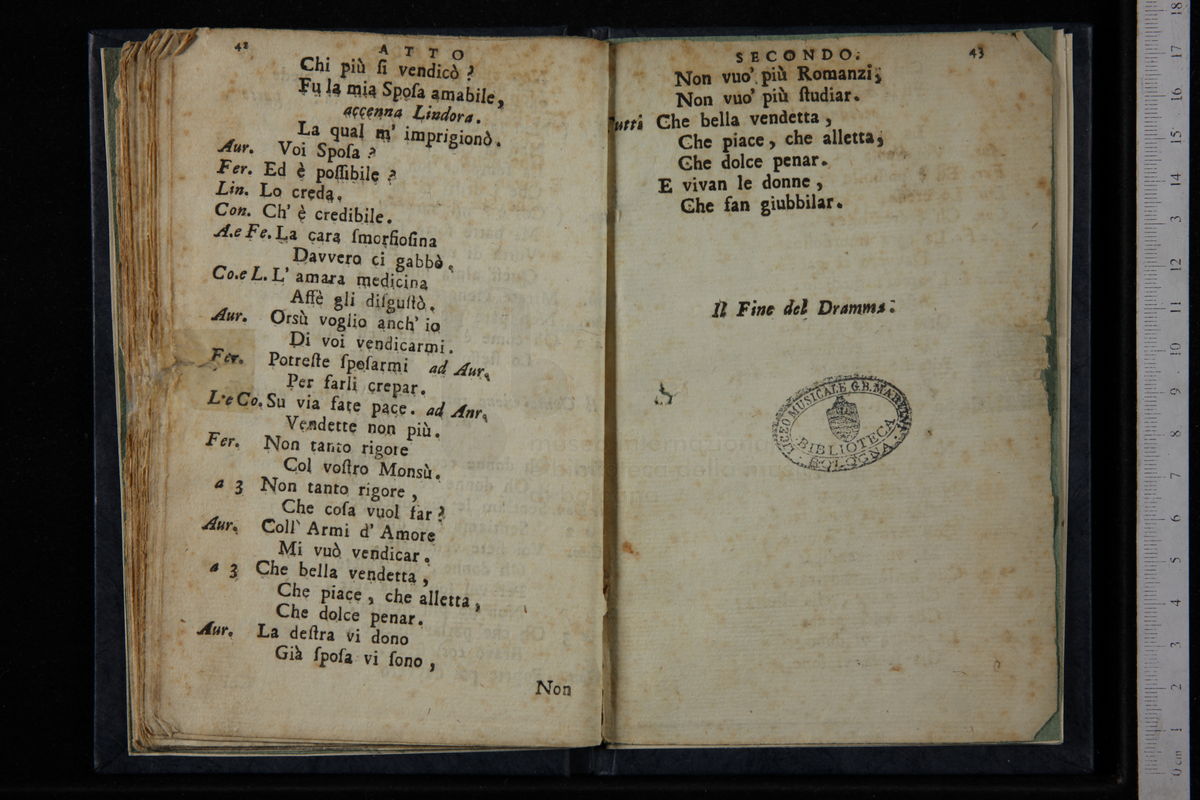 42
ATTO
Chi più ſi vendicò?
Fu la mia Spoſa amabile,
accenna Lindora.
La qual m' imprigionò.
Aur. Voi Spoſa?
Fer. Ed è poſſibile?
Lin. Lo creda.
Con. Ch' è credibile.
A.e Fe. La cara ſmorfioſina
Davvero ci gabbò.
Co.e L. L' amara medicina
Affè gli diſguſtò.
Aur. Orsù voglio anch' io
Di voi vendicarmi.
Fer. Potreſte ſpoſarmi ad Aur.
Per farli crepar.
L.e Co. Su via fate pace. ad Anr.
Vendette non più.
Fer. Non tanto rigore
Col voſtro Monsù.
a 3 Non tanto rigore,
Che coſa vuol far?
Aur. Coll' Armi d' Amore
Mi vuò vendicar.
a 3 Che bella vendetta,
Che piace, che alletta,
Che dolce penar.
Aur. La deſtra vi dono
Già ſpoſa vi ſono,
Non
SECONDO.
43
Non vuo' più Romanzi;
Non vuo' più ſtudiar.
Tutti Che bella vendetta,
Che piace, che alletta,
Che dolce penar.
E vivan le donne,
Che fan giubbilar.
Il Fine del Dramma.
LICEO MUSICALE G.B. MARTINI
BIBLIOTECA
BOLOGNA
museo internazionale
e biblioteca della musica
di bologna
0 cm 1 2 3 4 5 6 7 8 9 10 11 12 13 14 15 16 17 18